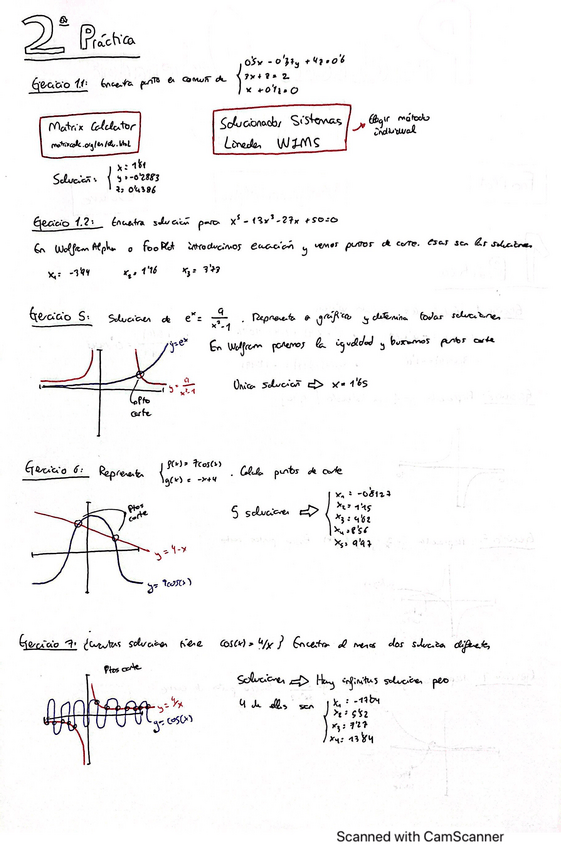 2ª Práctica
Ejercicio 1.1: Encuentra punto en común de { 0'5x - 0'37y + 4z = 0'6
3x + z = 2
x + 0'4z = 0
Matrix Calculator
matrixcalc.org/en/slu.html
Solucionador Sistemas
Lineales WIMS
Elegir método
individual
Solución: { x = 1'81
y = -0'2883
z = 0'4386
Ejercicio 1.2: Encuentra solución para x⁵ - 13x³ - 27x + 50 = 0
En Wolfram Alpha o FooPlot introducimos ecuación y vemos puntos de corte. Esas son las soluciones
x₁ = -3'94 x₂ = 1'16 x₃ = 3'73
Ejercicio 5: Soluciones de eˣ = 9/(x²-1) . Representa gráfico y determina todas soluciones
y = eˣ
En Wolfram ponemos la igualdad y buscamos puntos corte
y = 9/(x²-1)
Pto
corte
Unica solución ⇒ x = 1'65
Ejercicio 6: Representa { f(x) = 7cos(x)
g(x) = -x+4 . Calcula puntos de corte
Ptos
corte
y = 4-x
y = 7cos(x)
5 soluciones ⇒ { x₁ = -0'8127
x₂ = 1'15
x₃ = 4'62
x₄ = 8'56
x₅ = 9'97
Ejercicio 7: ¿Cuántas soluciones tiene cos(x) = 4/x? Encontrar al menos dos soluciones diferentes
Ptos corte
y = 4/x
y = cos(x)
Soluciones ⇒ Hay infinitas soluciones pero
4 de ellas son { x₁ = -17'64
x₂ = 5'52
x₃ = 7'27
x₄ = 13'84
Scanned with CamScanner